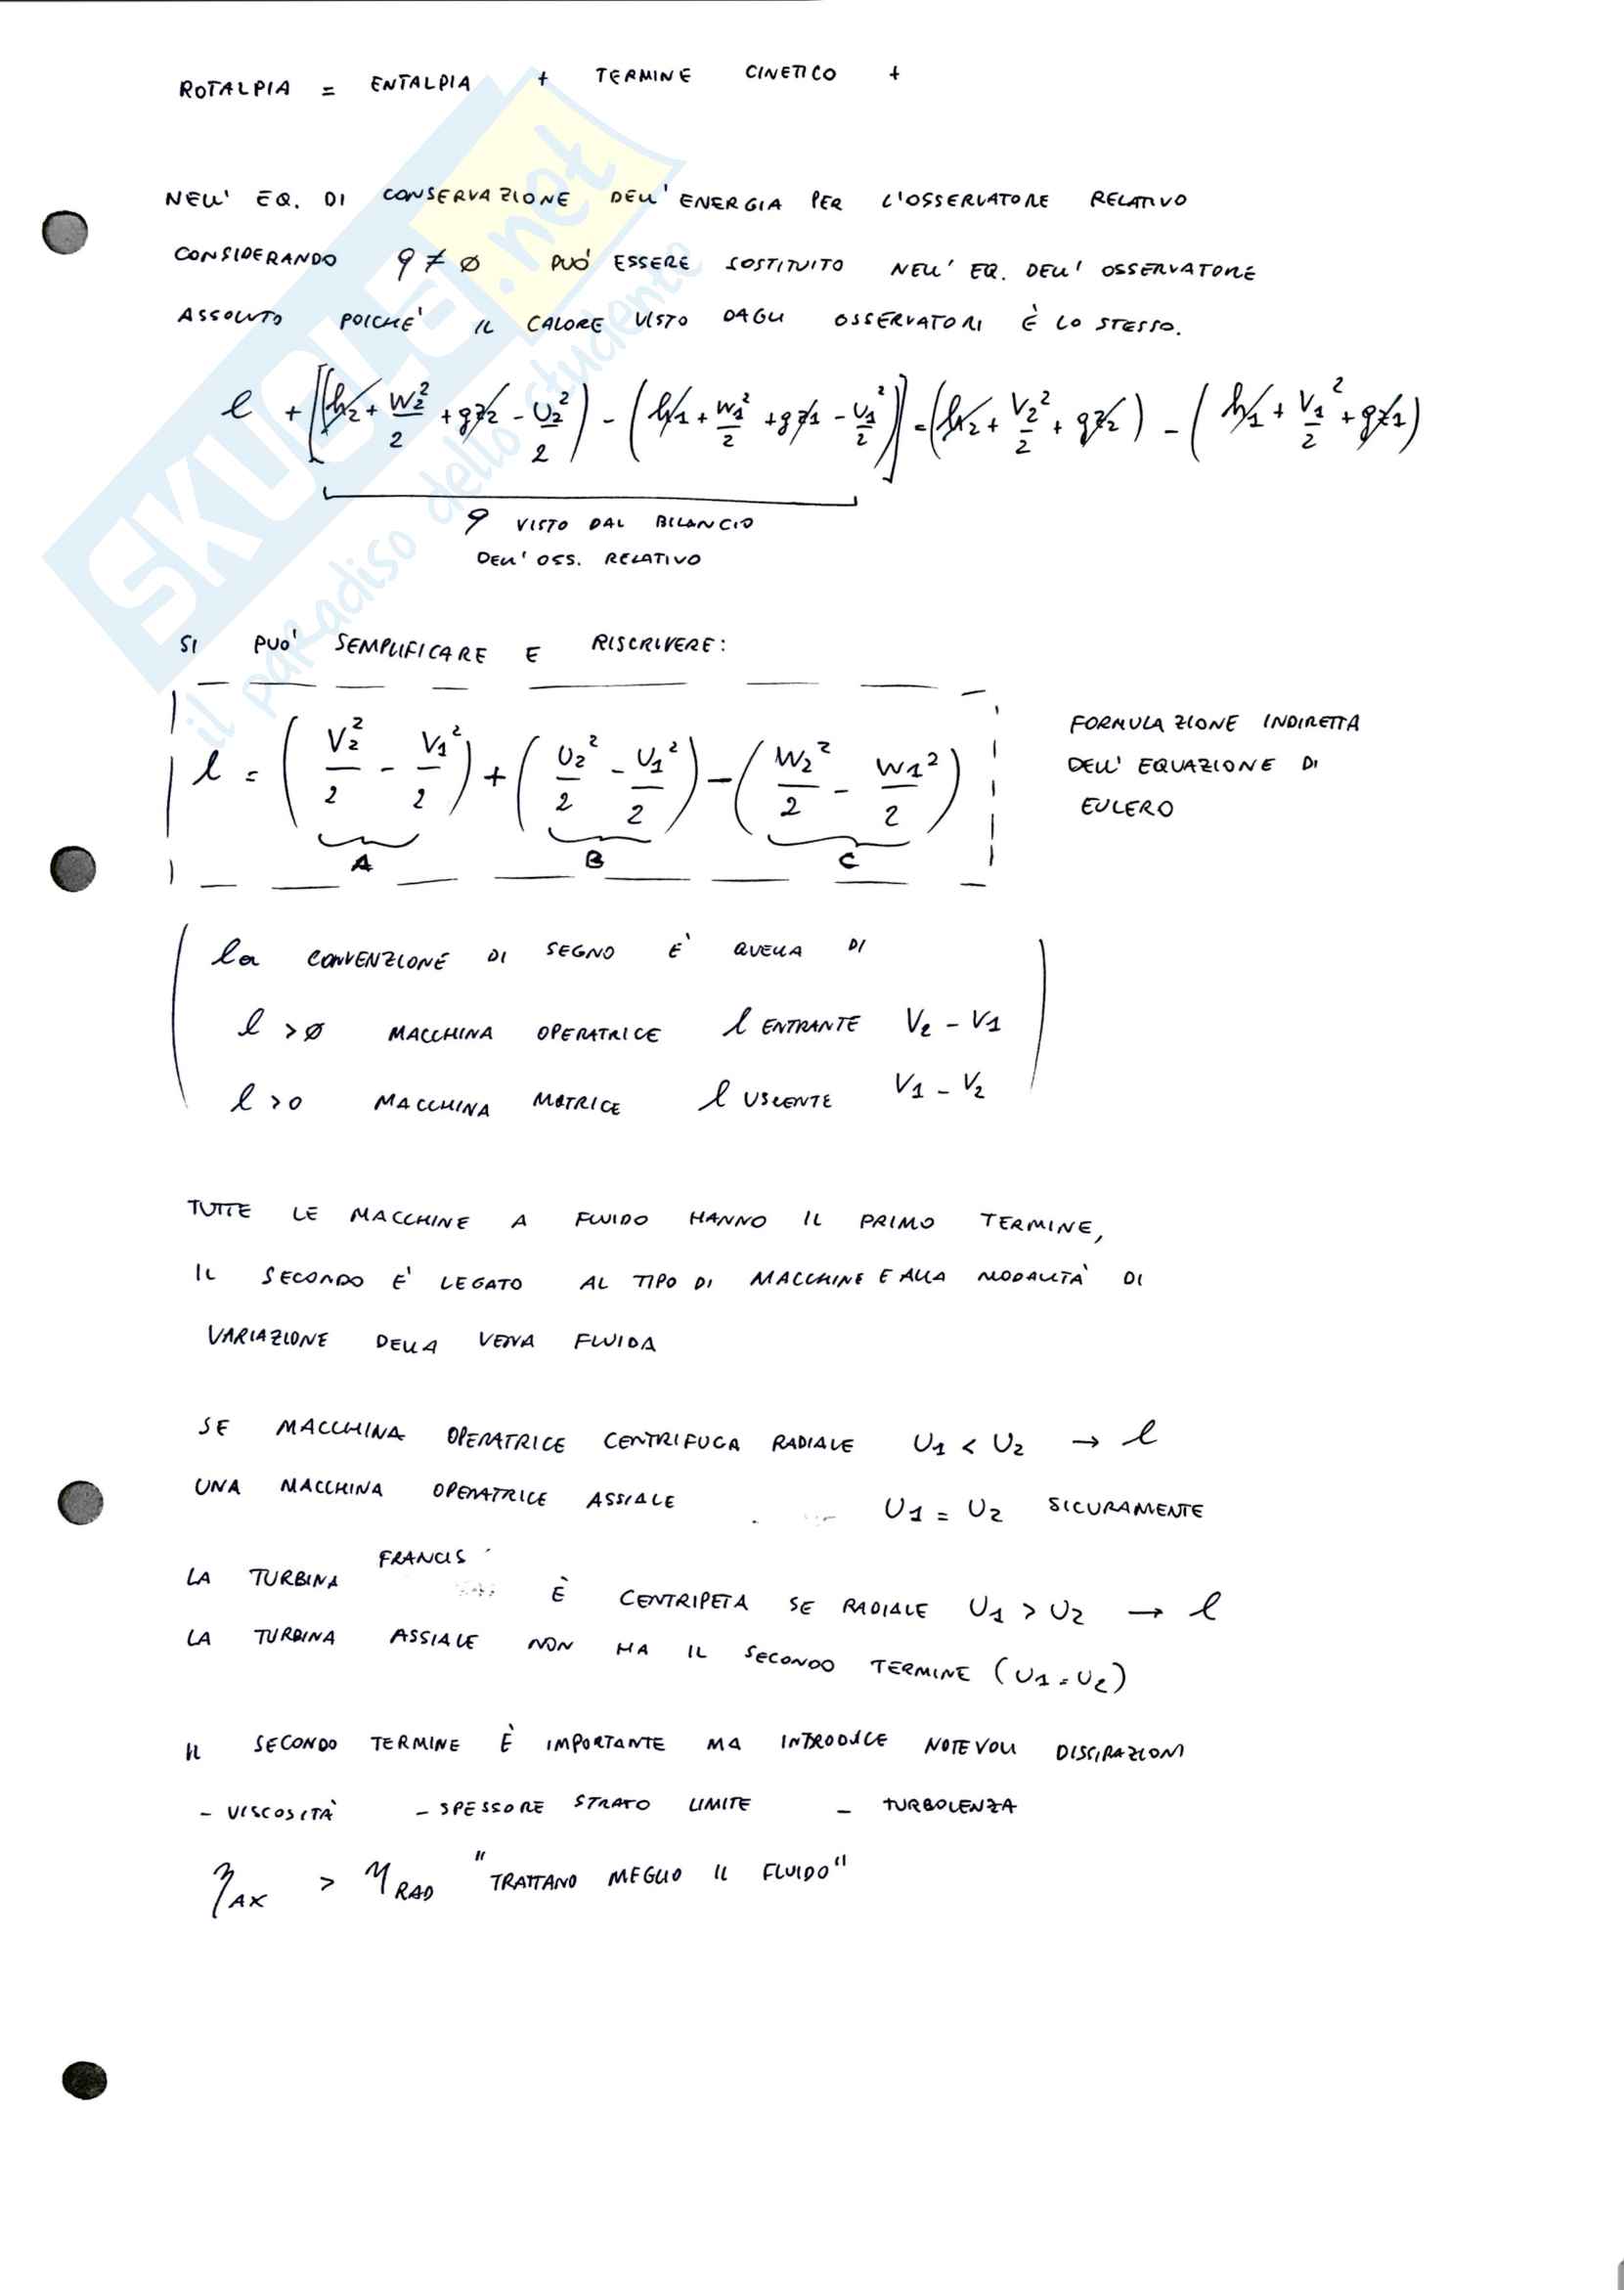 ROTALPIA = ENTALPIA + TERMINE CINETICO +
NELL' EQ. DI CONSERVAZIONE DELL' ENERGIA PER L'OSSERVATORE RELATIVO
CONSIDERANDO q ≠ ∅ PUÒ ESSERE SOSTITUITO NELL' EQ. DELL' OSSERVATORE
ASSOLUTO POICHE' IL CALORE VISTO DAGLI OSSERVATORI È LO STESSO.
l + [(h2 + W2²/2 + gz2 - U2²/2) - (h1 + W1²/2 + gz1 - U1²/2)] = (h2 + V2²/2 + gz2) - (h1 + V1²/2 + gz1)
q VISTO DAL BILANCIO
DELL' OSS. RELATIVO
SI PUO' SEMPLIFICARE E RISCRIVERE:
l = (V2²/2 - V1²/2) + (U2²/2 - U1²/2) - (W2²/2 - W1²/2)
A B C
FORMULAZIONE INDIRETTA
DELL' EQUAZIONE DI
EULERO
la CONVENZIONE DI SEGNO E' QUELLA DI
l > ∅ MACCHINA OPERATRICE l ENTRANTE V2 - V1
l > 0 MACCHINA MOTRICE l USCENTE V1 - V2
TUTTE LE MACCHINE A FLUIDO HANNO IL PRIMO TERMINE,
IL SECONDO E' LEGATO AL TIPO DI MACCHINE E ALLA MODALITÀ DI
VARIAZIONE DELLA VENA FLUIDA
SE MACCHINA OPERATRICE CENTRIFUGA RADIALE U1 < U2 → l
UNA MACCHINA OPERATRICE ASSIALE U1 = U2 SICURAMENTE
LA TURBINA FRANCIS È CENTRIPETA SE RADIALE U1 > U2 → l
LA TURBINA ASSIALE NON HA IL SECONDO TERMINE (U1 = U2)
IL SECONDO TERMINE È IMPORTANTE MA INTRODUCE NOTEVOLI DISSIPAZIONI
- VISCOSITÀ - SPESSORE STRATO LIMITE - TURBOLENZA
ηAX > ηRAD "TRATTANO MEGLIO IL FLUIDO"
SKUOLA.net
il paradiso dello studente